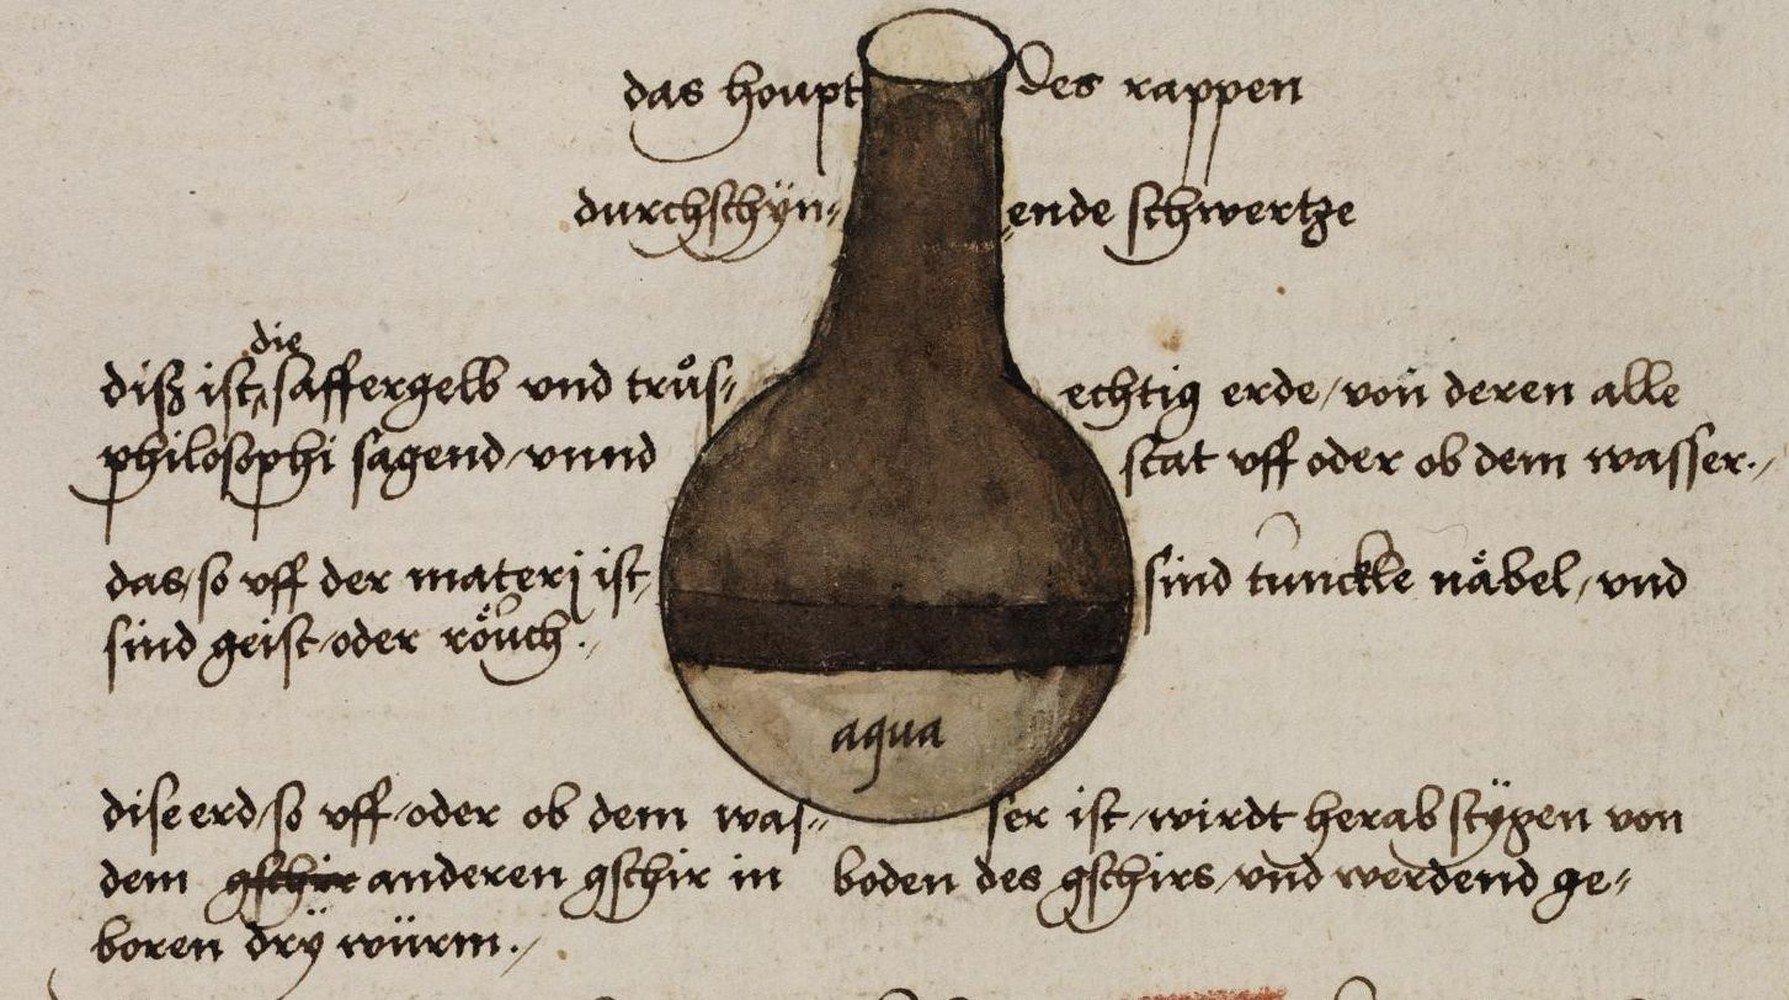 das houpt des rappen
durchschÿn= ende schwertze
die
diß ist saffergelb vnd trůs= echtig erde / von deren alle
philosophi sagend / vnnd stat vff oder ob dem wasser./
das / so vff der materj ist / sind tunckle nåbel / vnd
sind geist / oder rôuch./
aqua
dise erd / so vff / oder ob dem was= ser ist / wirdt herab stÿgen von
dem gschir anderen gschir in boden des gschirs / vnd werdend ge=
boren drÿ würm./